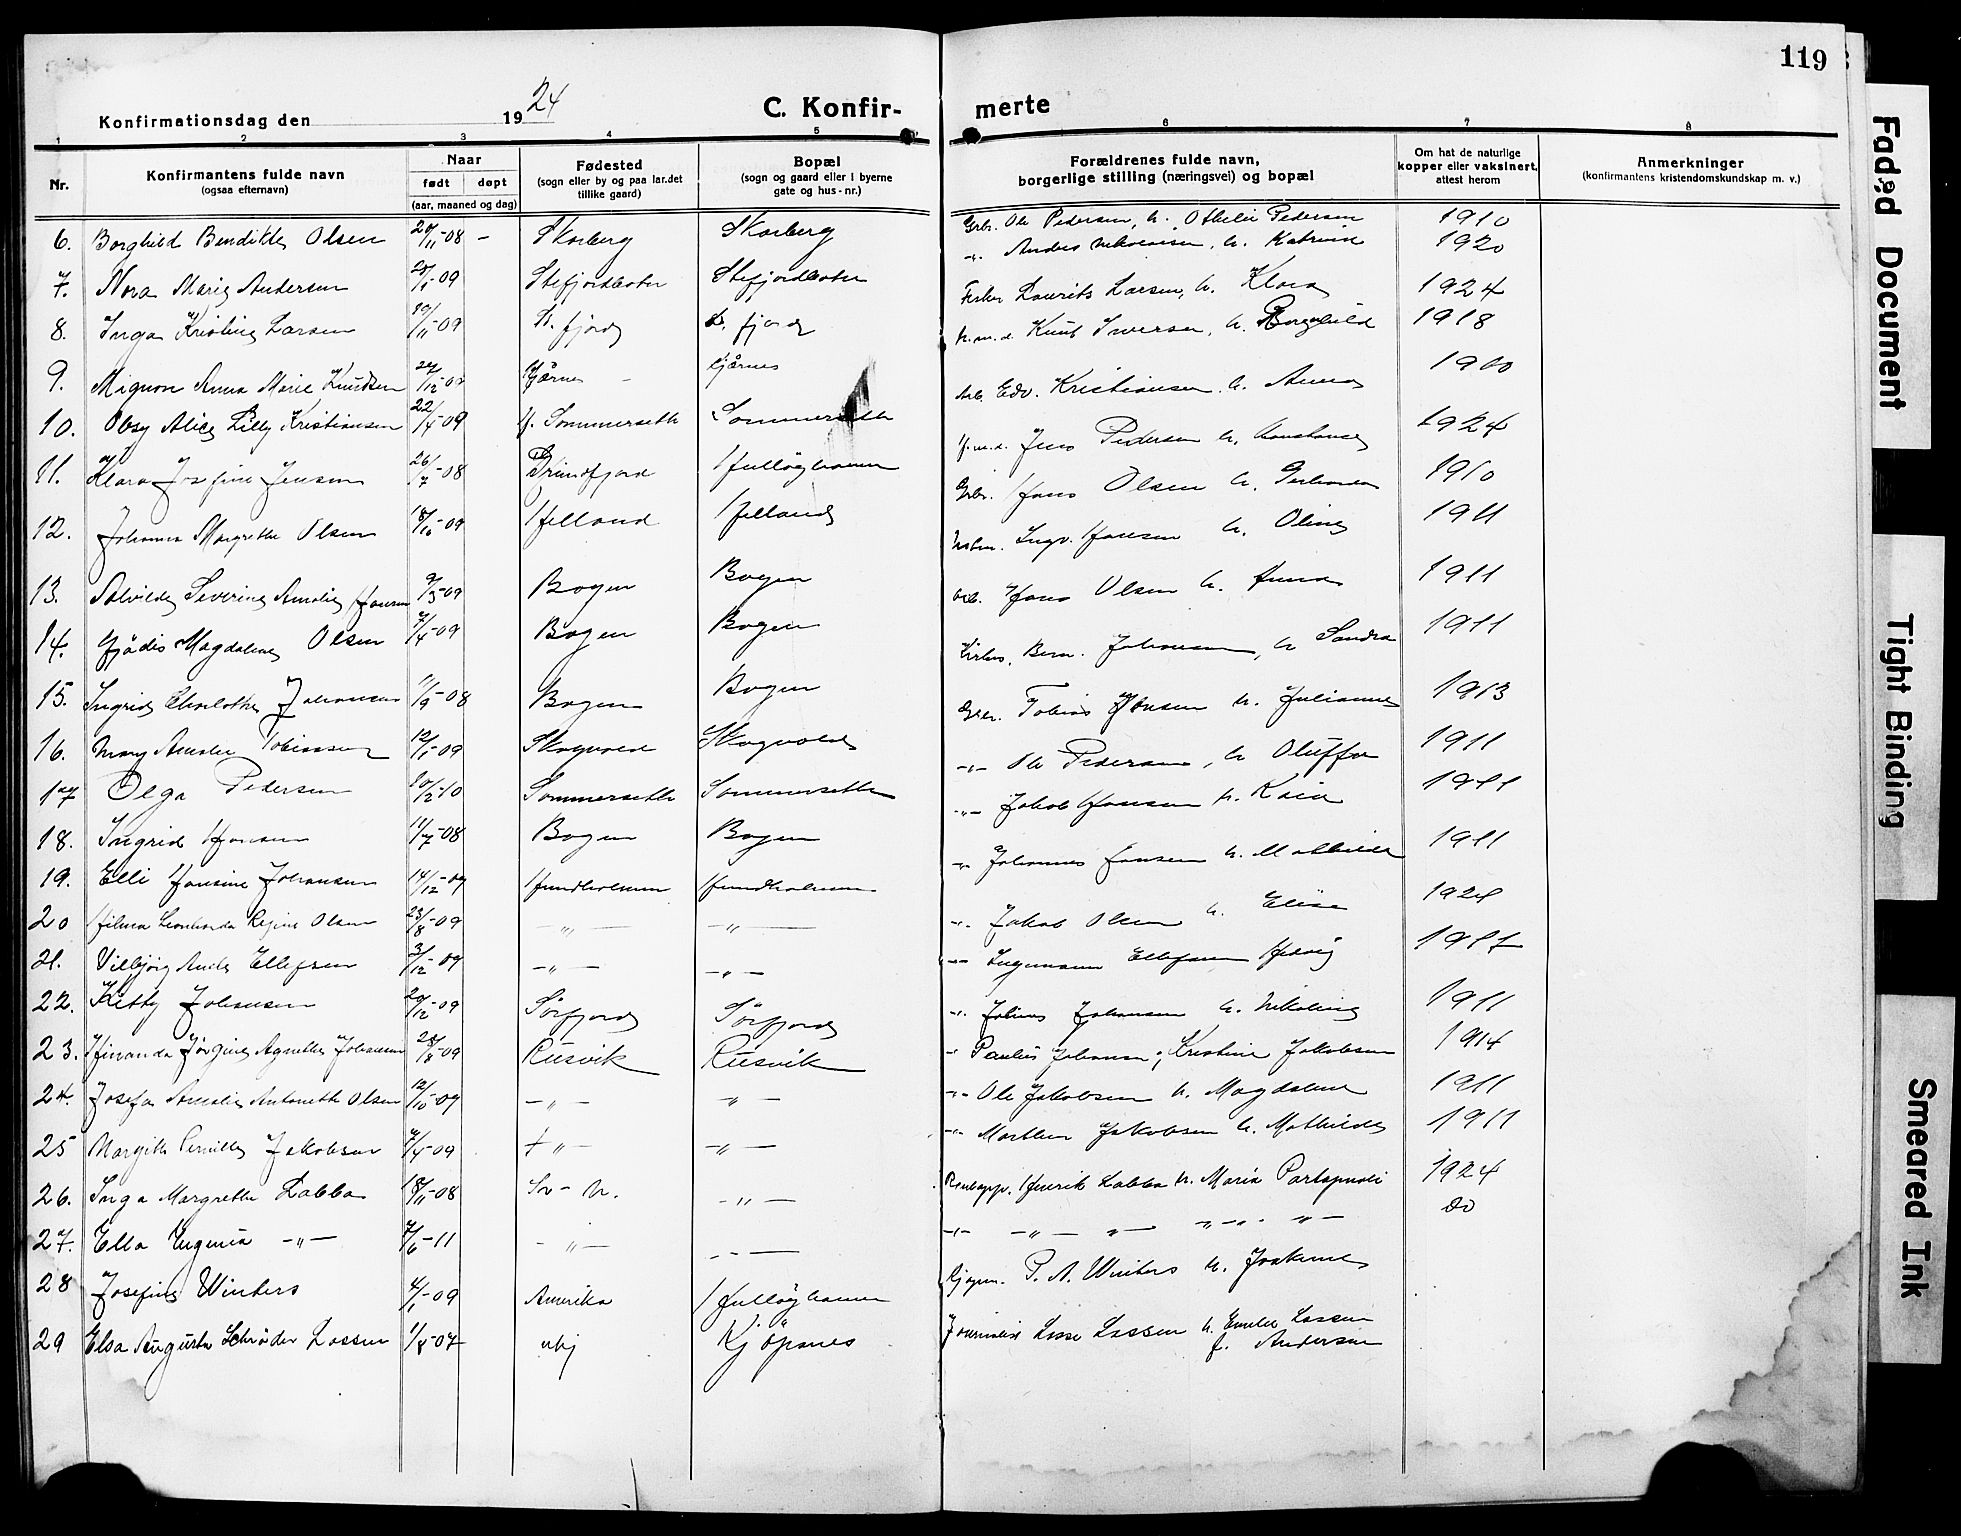 119
Konfirmationsdag den 1924
C. Konfir-
merte
1 2 3 4 5 6 7 8
Nr.
Konfirmantens fulde navn
(ogsaa efternavn)
Naar
født døpt
(aar, maaned og dag)
Fødested
(sogn eller by og paa lar.det
tillike gaard)
Bopæl
(sogn og gaard eller i byerne
gate og hus-nr.)
Forældrenes fulde navn,
borgerlige stilling (næringsvei) og bopæl
Om hat de naturlige
kopper eller vaksinert,
attest herom
Anmerkninger
(konfirmantens kristendomskundskap m. v.)
6. Borghild Bendikte Olsen 20/11-08 - Skarberg Skarberg Grbr. Ole Pedersen, h. Othelie Pedersen 1910
7. Nora Marie Andersen /1-09 Stefjordbotn Stefjordbotn -"- h. Katrine 1920
8. Inga Kristine Larsen /11-09 St. fjord St. fjord Fisker Laurits Larsen, h. Klara 1924
9. Mignon Anna Marie Knudsen Kjærnes Kjærnes Knut Iversen, h. Borghild 1918
10. Olsy Alice Lilly Kristiansen 22/4-09 Sommerseth Sommerseth Arb. Edv. Kristiansen h. Anna 1900
11. Klara Josefine Jensen 26/7-08 Grindfjord Hulløyhamn Jens Pedersen h. Konstanse 1924
12. Johanna Margrethe Olsen 18/10-09 Helland Helland Grbr. Hans Olsen h. 1910
13. Solvilde Severine Amalie Hansen 9/3-09 Bogen Bogen Ingv. Hansen h. Oline 1911
14. Hjødis Magdalene Olsen 7/4-09 Bogen Bogen Arb. Hans Olsen h. Anna 1911
15. Ingrid Charlotte Johansen 11/9-08 Bogen Bogen Bern. Johansen, h Sandra 1911
16. Mary Amalie Tobiassen 12/1-09 Skogvold Skogvold Grbr. Tobias Hansen h. Julianne 1913
17 Olga Pedersen 10/2-10 Sommerseth Sommerseth -"- Ole Pedersen, h Oluffa 1911
18. Ingrid Hansen 11/7-08 Bogen Bogen -"- Jakob Hansen h. Kaia 1911
19. Elli Hansine Johansen 14/12-09 Hundholmen Hundholmen -"- Johannes Hansen h. Mathilde 1911
20 Hilma Leonharda Regine Olsen 23/8-09 -"- -"- -"- Jakob Olsen h. Elise
21. Vilbjørg Ellefsen 3/12-09 -"- -"- -"- Ingemann Ellefsen Hedvig
22. Kitty Johansen 20/12-09 Sørfjord Sørfjord -"- Julius Johansen h. Nikoline 1911
23. Hinanda Jørgine Agnethe Johansen /8-09 Rusvik Rusvik -"- Paulus Johansen, Kristine Jakobsen 1914
24. Josefa Amalie Antonette Olsen 12/10-09 -"- -"- -"- Ole Jakobsen h. Magdalene 1911
25 Margith Pernille Jakobsen /4-09 -"- -"- -"- Morthen Jakobsen h. Mathilde 1911
26. Inga Margrethe Labba 18/11-08 -"- Henrik Labba h. Maria Partapuoli 1924
27. Ella Eugenia -"- 7/6-11 -"- -"- -"- -"- -"- -"- do
28 Josefine Winters 4/1-09 Amerika Hulløyhamn Kjøpm. P. A. Winters h. Joakime
29 Elsa Augusta Schrøder Lassen 1/8-07 Kjöpsnes Journalist Lasse Lassen h. Emelie Lassen
f. Andersen
Faded Document
Tight Binding
Smeared Ink